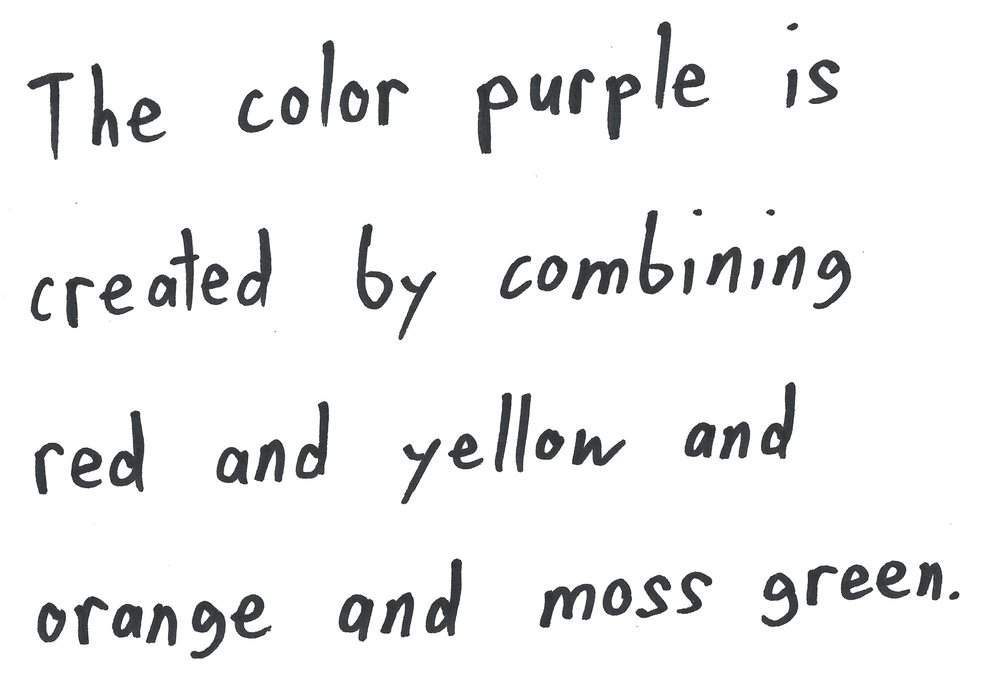 The color purple is
created by combining
red and yellow and
orange and moss green.